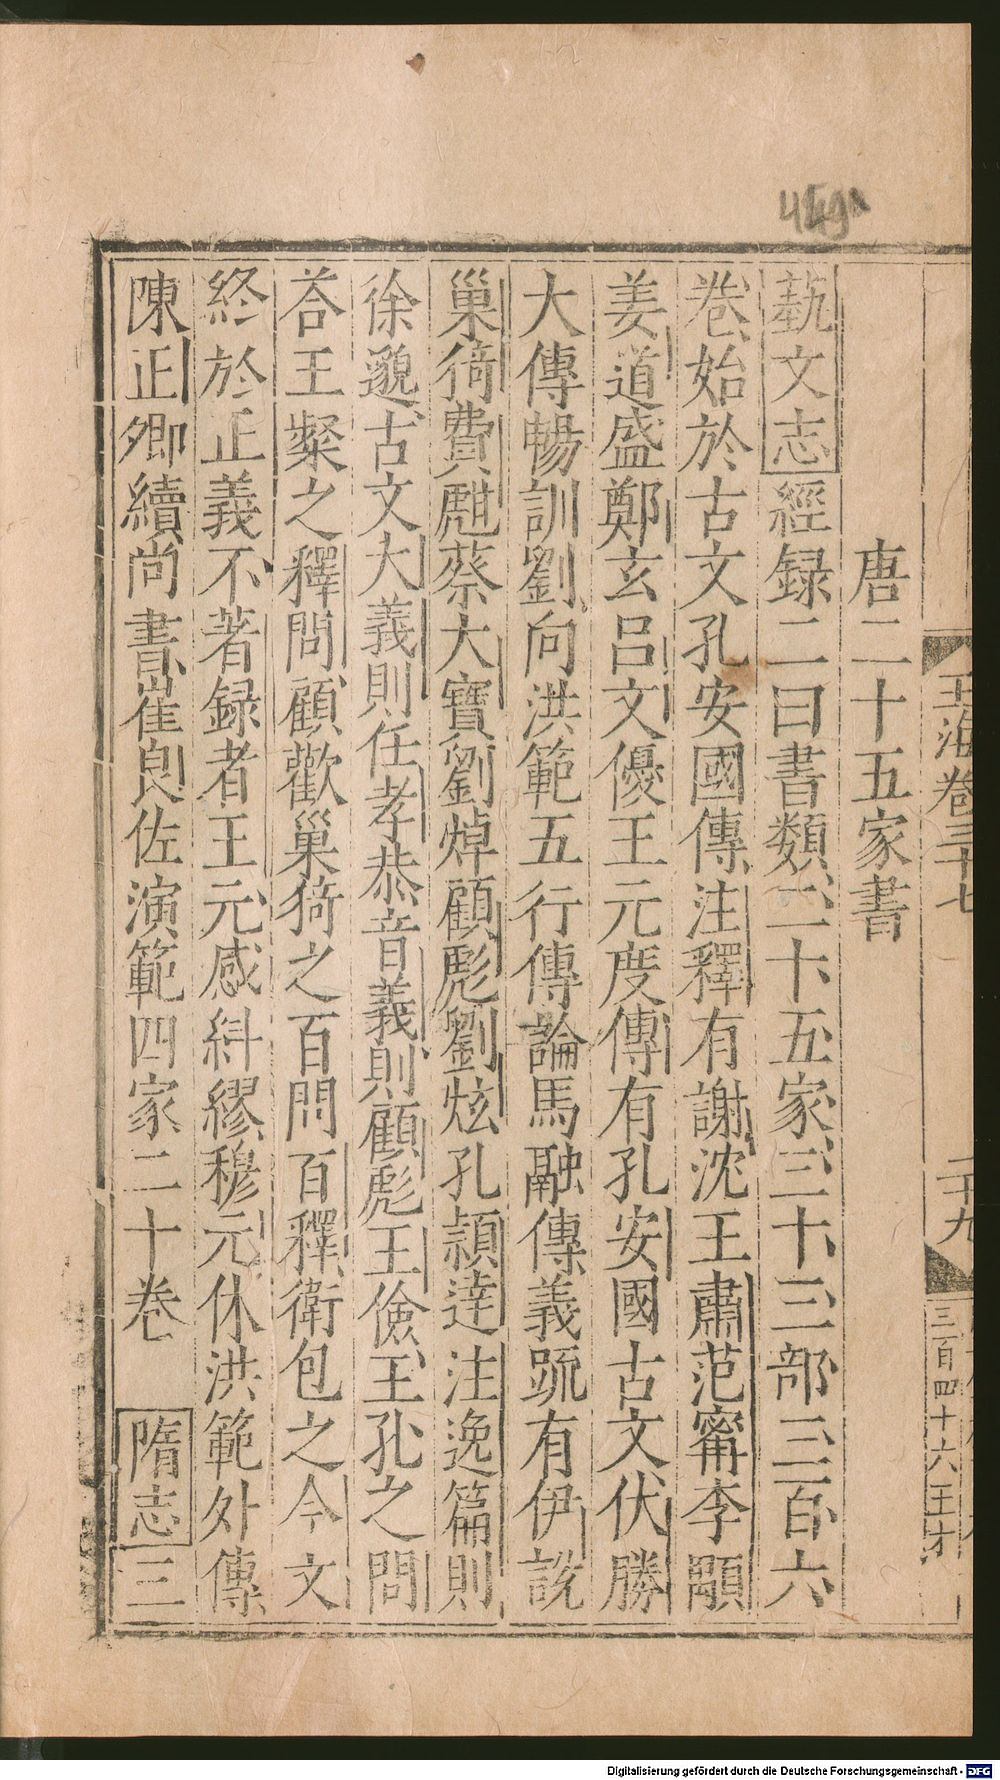 玉海卷三十七
二十九
三百四十六 王才
唐二十五家書
藝文志經録二曰書類二十五家三十三部三百六
卷始於古文孔安國傳注釋有謝沈王肅范甯李顒
姜道盛鄭玄呂文優王元度傳有孔安國古文伏勝
大傳暢訓劉向洪範五行傳論馬融傳義䟽有伊說
巢猗費甝蔡大寶劉焯顧彪劉炫孔頴逹注逸篇則
徐邈古文大義則任孝恭音義則顧彪王儉王孔之問
荅王粲之釋問顧歡巢猗之百問百釋衛包之今文
終於正義不著録者王元感糾繆穆元休洪範外傳
陳正卿續尚書崔良佐演範四家二十卷 隋志三
449
Digitalisierung gefördert durch die Deutsche Forschungsgemeinschaft - DFG